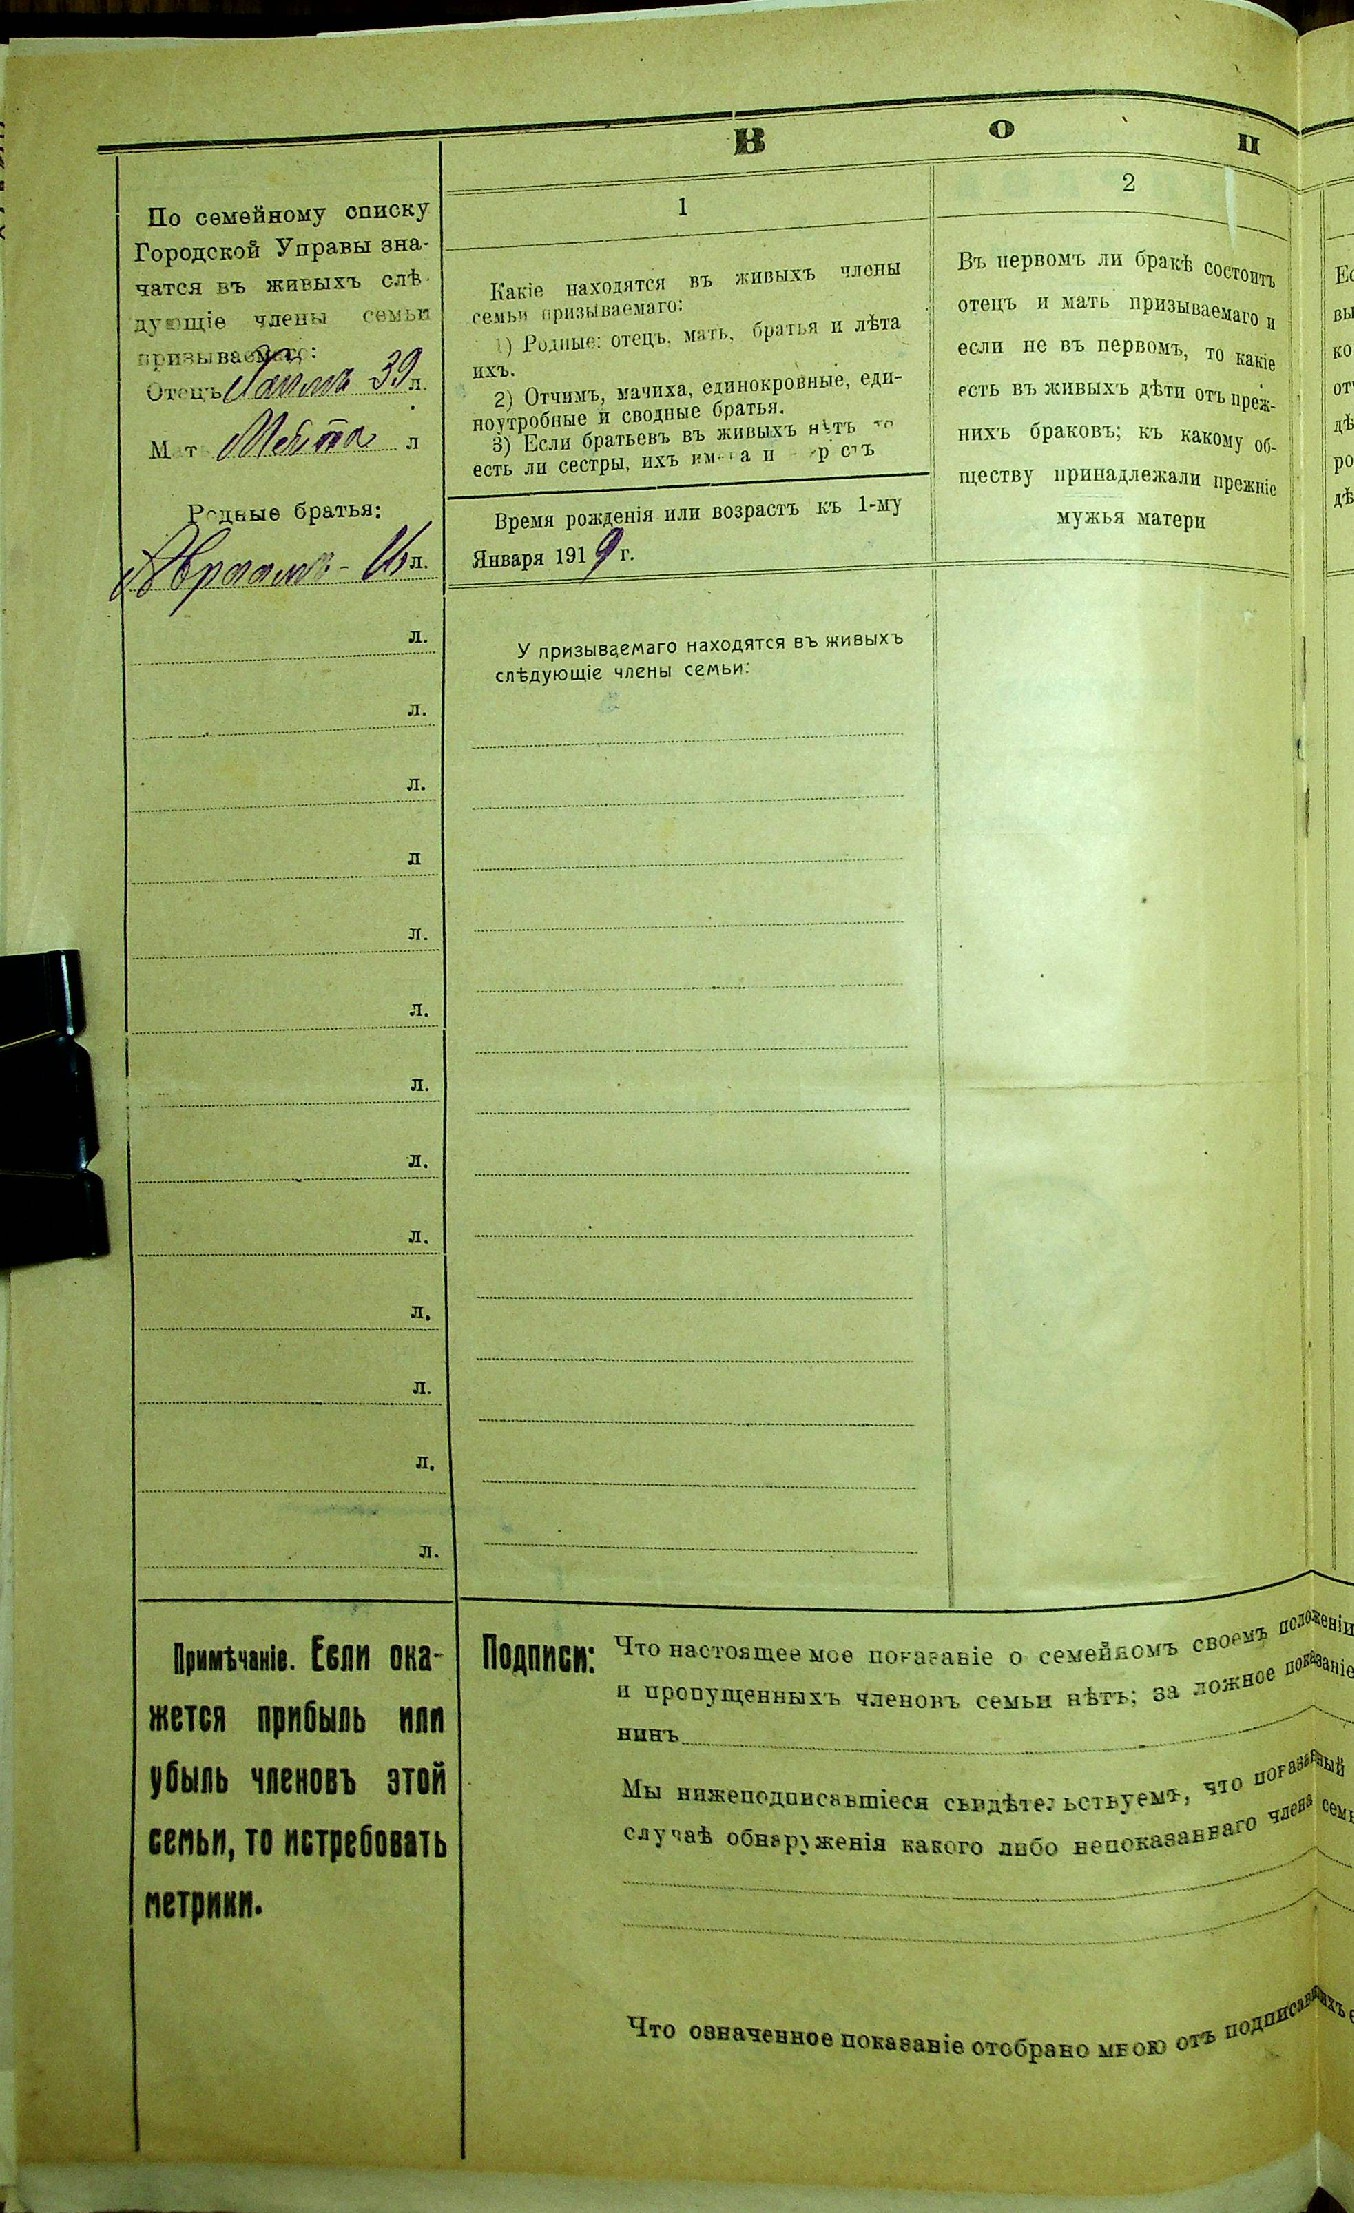 В о п
По семейному списку
Городской Управы зна-
чатся въ живыхъ слѣ-
дующіе члены семьи
призываемаго:
Отецъ 39 л.
Мать л
Родные братья:
Абрамъ - 16 л.
л.
л.
л.
л
л.
л.
л.
л.
л.
л.
л.
л.
л.
1
Какіе находятся въ живыхъ члены
семьи призываемаго:
1) Родные: отецъ, мать, братья и лѣта
ихъ.
2) Отчимъ, мачиха, единокровные, еди-
ноутробные и сводные братья.
3) Если братьевъ въ живыхъ нѣтъ то
есть ли сестры, ихъ имена и
Время рожденія или возрастъ къ 1-му
Января 1919 г.
У призываемаго находятся въ живыхъ
слѣдующіе члены семьи:
2
Въ первомъ ли бракѣ состоитъ
отецъ и мать призываемаго и
если не въ первомъ, то какіе
есть въ живыхъ дѣти отъ преж-
нихъ браковъ; къ какому об-
ществу принадлежали прежніе
мужья матери
Примѣчаніе. Если ока-
жется прибыль или
убыль членовъ этой
семьи, то истребовать
метрики.
Подписи: Что настоящее мое показаніе о семейномъ своемъ положеніи
и пропущенныхъ членовъ семьи нѣтъ; за ложное показаніе
нинъ
Мы нижеподписавшіеся свидѣтельствуемъ, что показанный
случаѣ обнаруженія какого либо непоказаннаго члена семь
Что означенное показаніе отобрано мною отъ